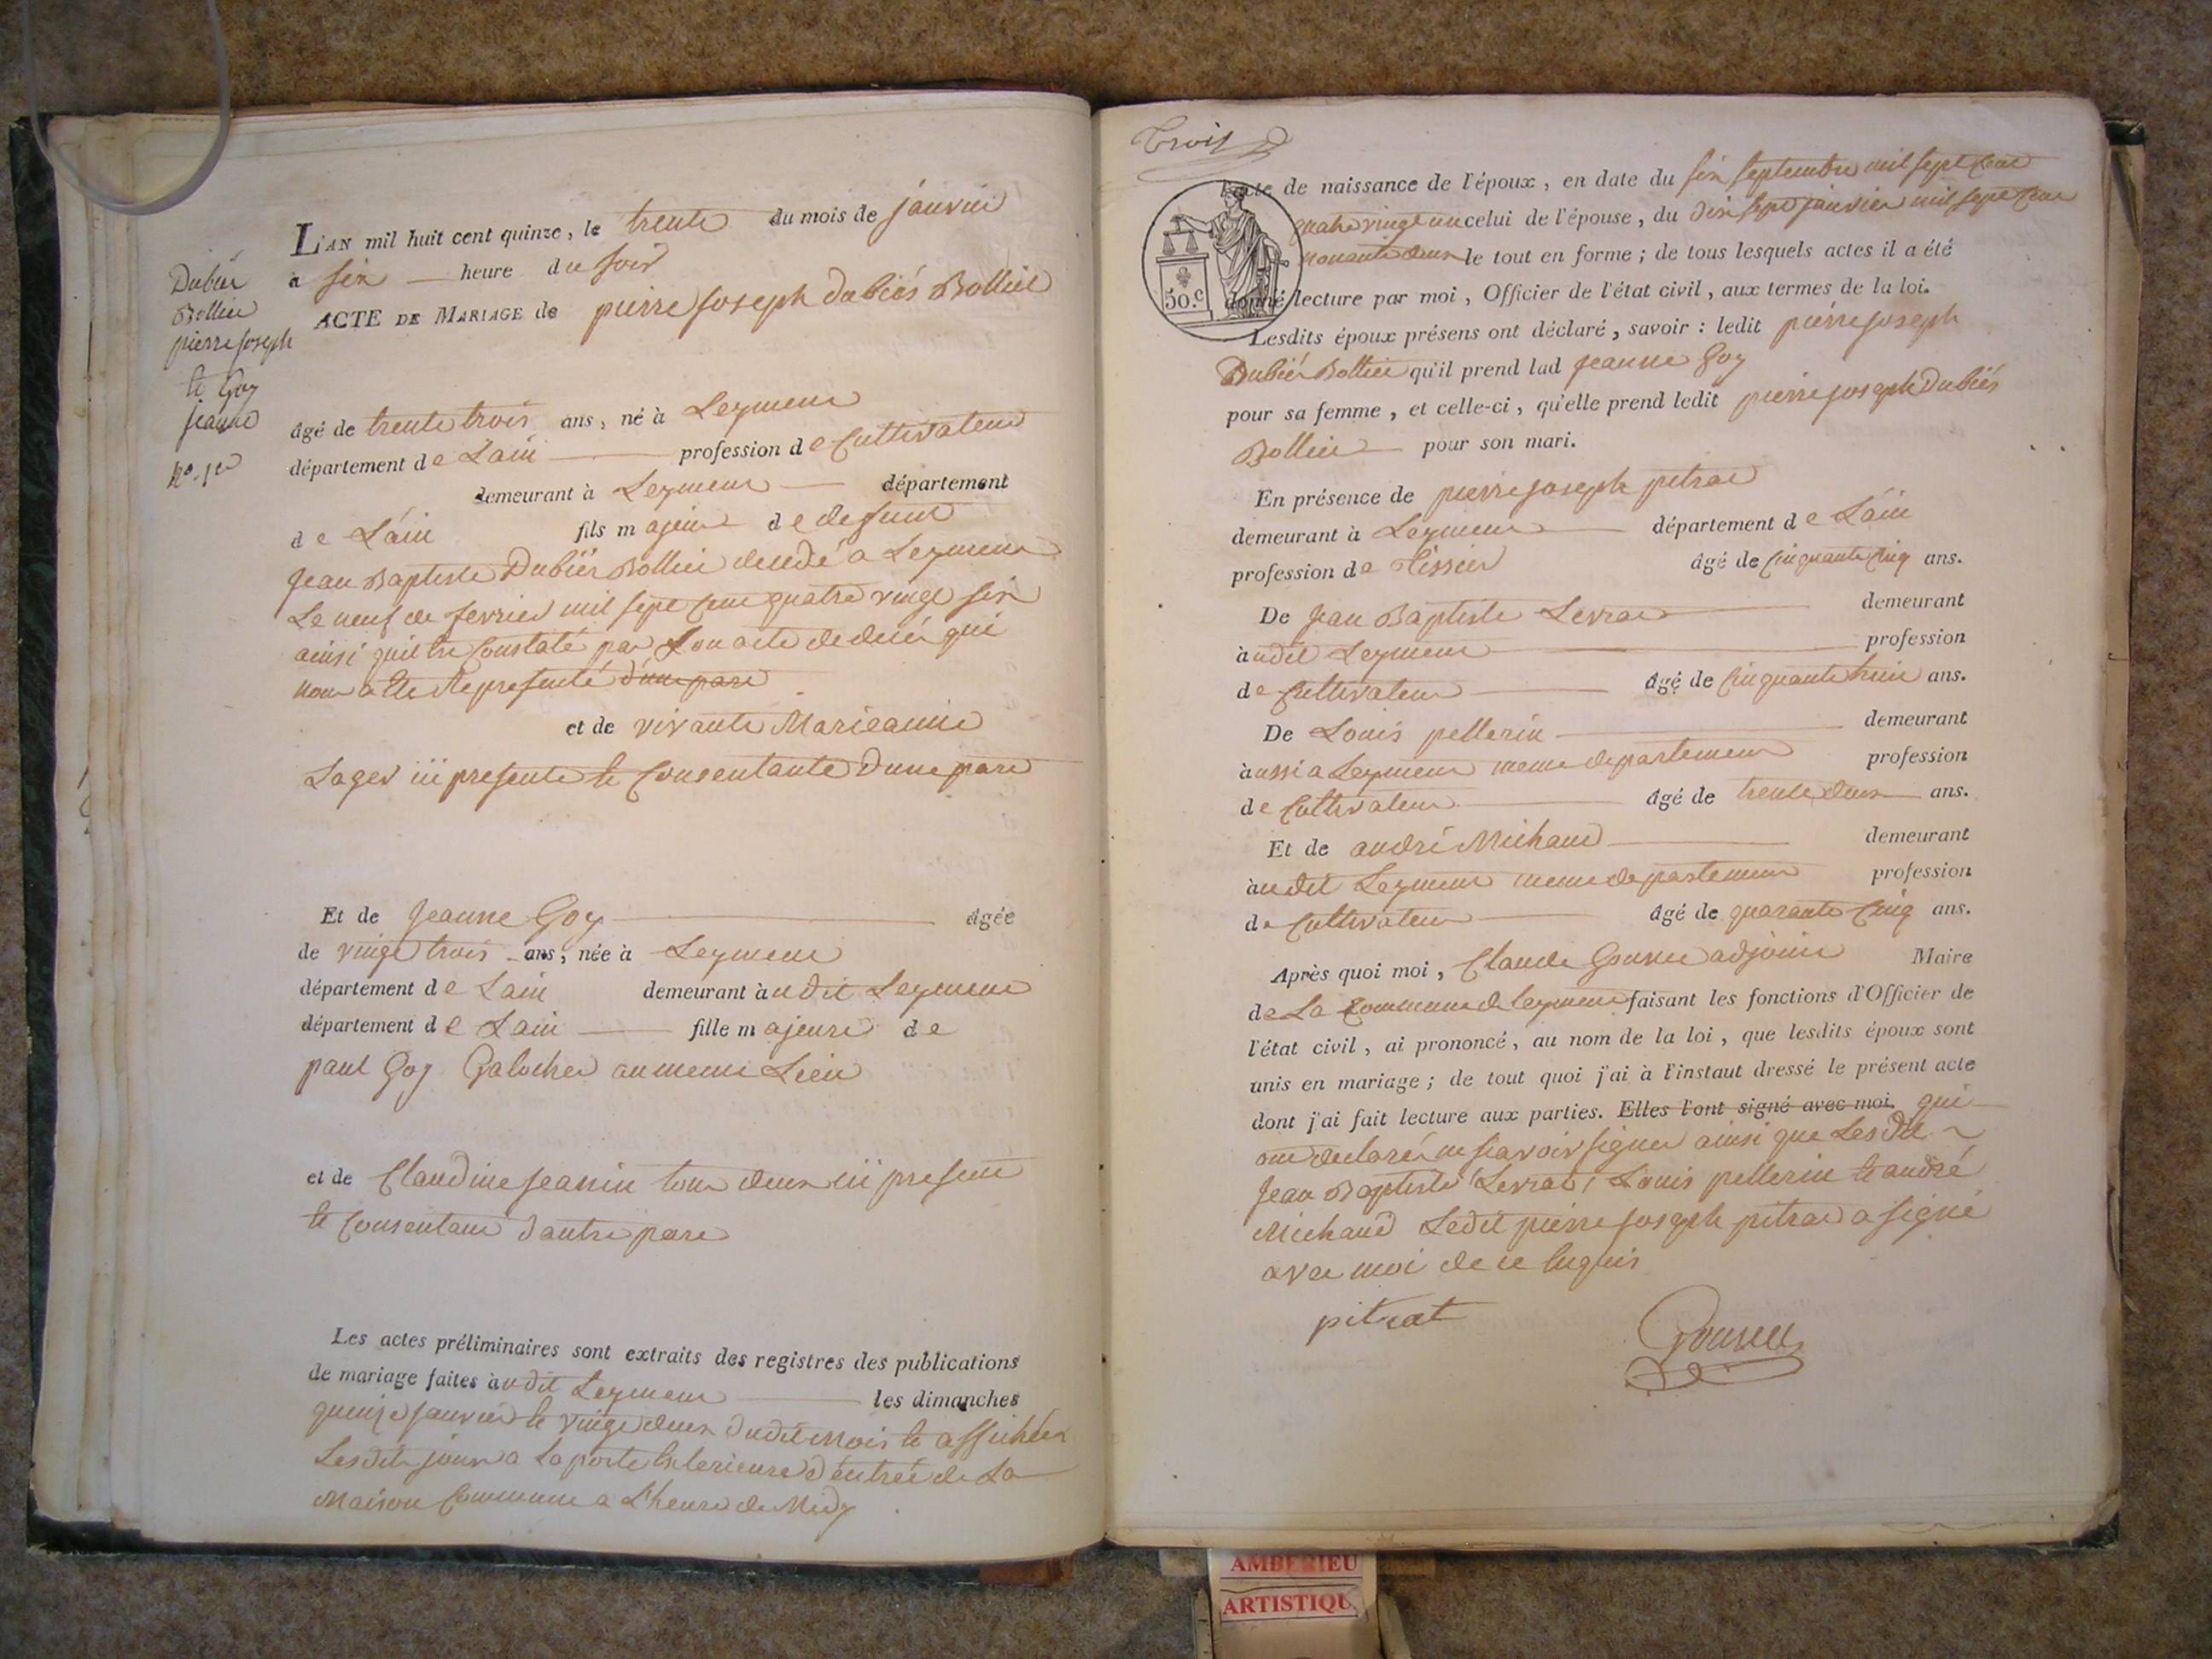 Dubiés
Bollier
pierre Joseph
te Goy
jeanne
No. 1er
L'AN mil huit cent quinze, le trente du mois de janvier
à six heure du soir
ACTE DE MARIAGE de pierre Joseph Dubiés Bollier
âgé de trente trois ans, né à Leyment
département de Lain profession de Cultivateur
demeurant à Leyment département
de Lain fils majeur de defunt
Jean Baptiste Dubiés Bollier décédé a Leyment
Le neuf de fevrier mil sept cent quatre vingt six
ainsi quil est Constaté par Son acte de décés qui
nous a été Représenté d'une part
et de vivante Marieanne
Lager ici presente te Consentante Dune part
Et de Jeanne Goy âgée
de vingt trois ans, née à Leyment
département de Lain demeurant audit Leyment
département de Lain fille majeure de
paul Goy Galocher au meme Lieu
et de Claudine Jeannin tous deux ici present
te Consentant Dautre part
Les actes préliminaires sont extraits des registres des publications
de mariage faites audit Leyment les dimanches
quinze janvier te vingt deux dudit Mois te affichées
Lesdits jours a La porte Exterieure d'entrée de La
Maison Commune a L'heure de Midy
Trois
L'acte de naissance de l'époux, en date du six septembre mil sept cent
quatre vingt un celui de l'épouse, du dix sept janvier mil sept cent
nonante deux le tout en forme; de tous lesquels actes il a été
donné lecture par moi, Officier de l'état civil, aux termes de la loi.
50.c
Lesdits époux présens ont déclaré, savoir: ledit pierre joseph
Dubiés Bollier qu'il prend lad jeanne Goy
pour sa femme, et celle-ci, qu'elle prend ledit pierre joseph Dubiés
Bollier pour son mari.
En présence de pierre joseph pitrat
demeurant à Leyment département de Lain
profession de Tissier âgé de Cinquante Cinq ans.
De Jean Baptiste Levrat demeurant
audit Leyment profession
de Cultivateur âgé de Cinquante huit ans.
De Louis pellerin demeurant
aussi a Leyment meme departement profession
de Cultivateur âgé de trente deux ans.
Et de andré Michaud demeurant
audit Leyment meme departement profession
de Cultivateur âgé de quarante Cinq ans.
Après quoi moi, Claude adjoint Maire
de La Commune de leyment faisant les fonctions d'Officier de
l'état civil, ai prononcé, au nom de la loi, que lesdits époux sont
unis en mariage; de tout quoi j'ai à l'instaut dressé le présent acte
dont j'ai fait lecture aux parties. Elles l'ont signé avec moi. qui
ont declarés ne scavoir signer ainsi que Lesdit
Jean Baptiste Levrat, Louis pellerin te andré
Michaud Ledit pierre joseph pitrat a signé
avec moi de ce Enquis
pitrat
AMBERIEU
ARTISTIQU